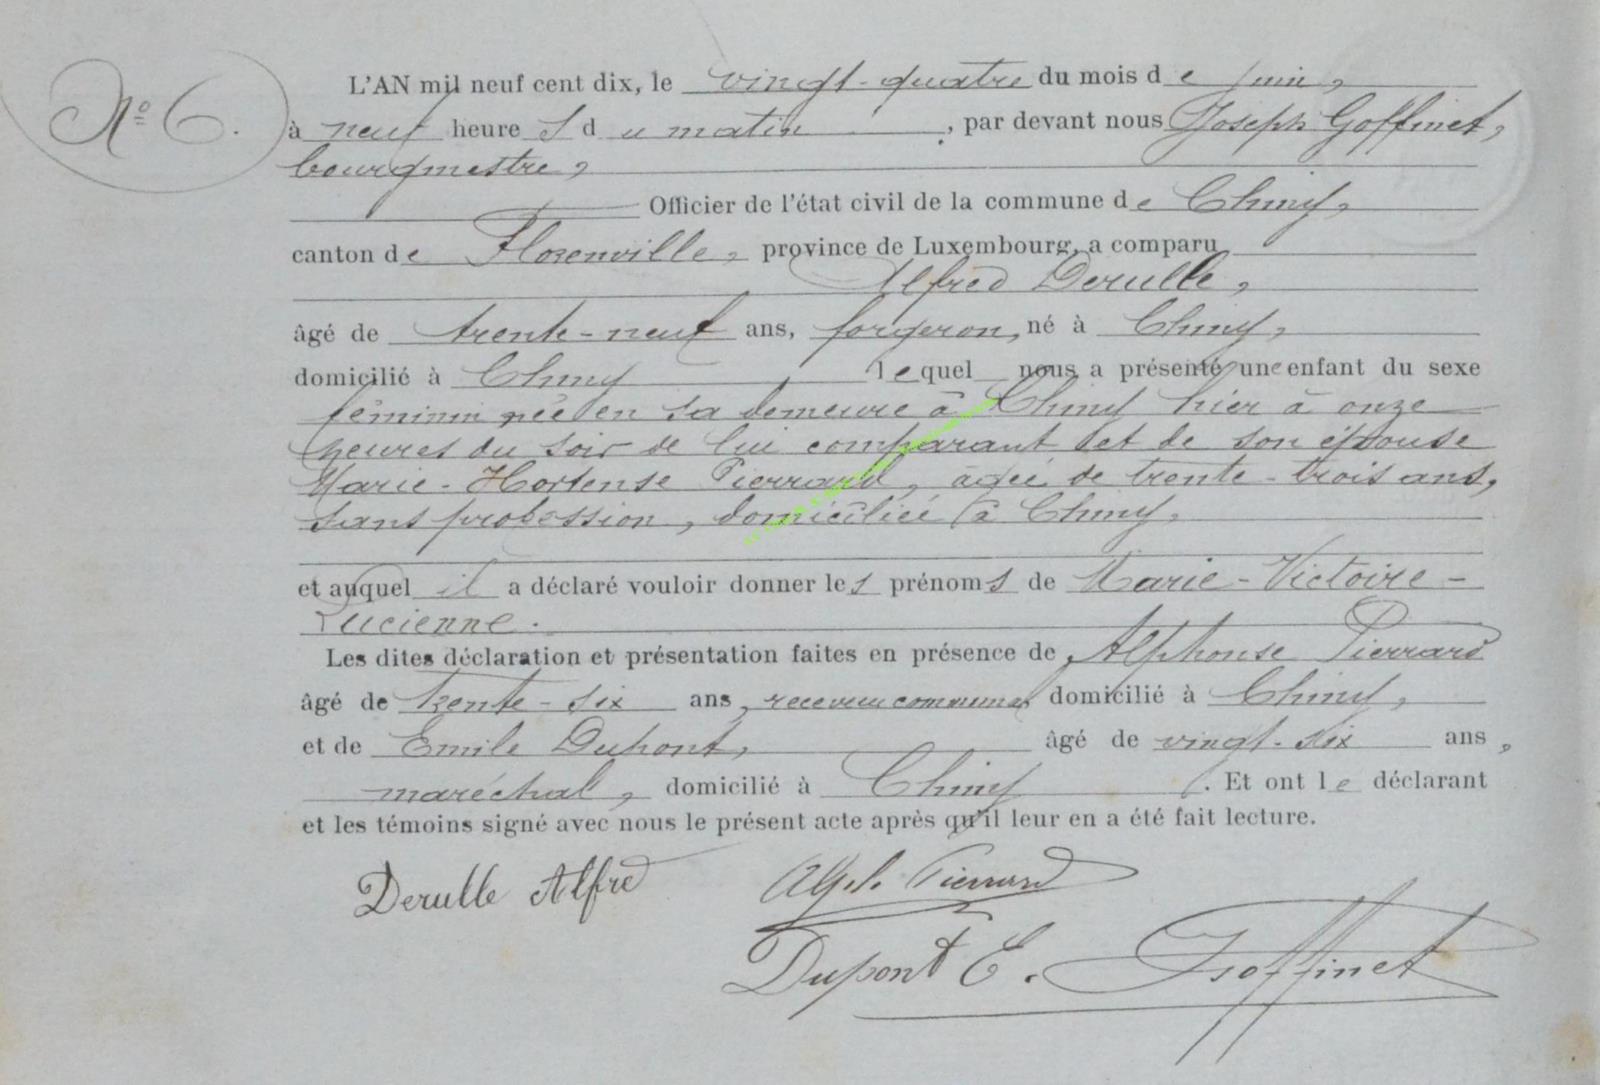 L'AN mil neuf cent dix, le vingt-quatre du mois de juin,
N° 6.
à neuf heures du matin, par devant nous Joseph Goffinet,
bourgmestre,
Officier de l'état civil de la commune de Chiny,
canton de Florenville, province de Luxembourg, a comparu
Alfred Derulle,
âgé de trente-neuf ans, forgeron, né à Chiny,
domicilié à Chiny lequel nous a présenté une enfant du sexe
féminin née en sa demeure à Chiny hier à onze
heures du soir de lui comparant et de son épouse
Marie-Hortense Pierrard, agée de trente-trois ans,
sans profession, domiciliée à Chiny,
et auquel il a déclaré vouloir donner les prénoms de Marie-Victoire-
Lucienne.
Les dites déclaration et présentation faites en présence de Alphonse Pierrard
âgé de trente-six ans, receveur communal domicilié à Chiny,
et de Emile Dupont, âgé de vingt-six ans,
maréchal, domicilié à Chiny. Et ont le déclarant
et les témoins signé avec nous le présent acte après qu'il leur en a été fait lecture.
Derulle Alfred Alph. Pierrard
Dupont E. JGoffinet